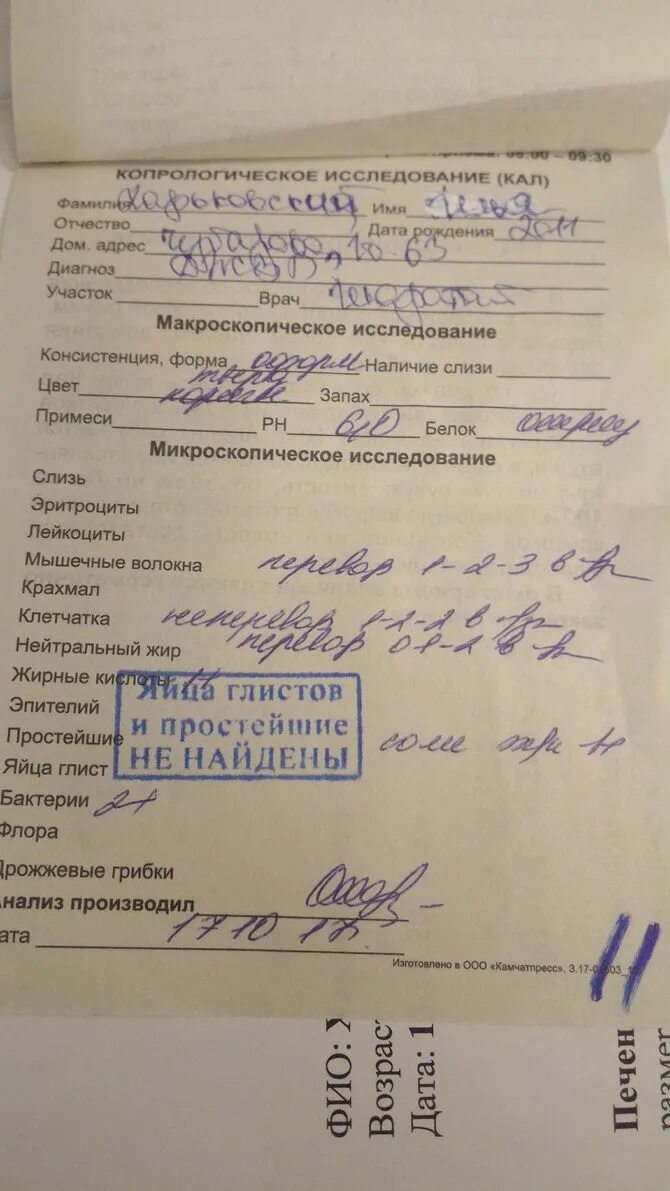 06:00 – 09:30
КОПРОЛОГИЧЕСКОЕ ИССЛЕДОВАНИЕ (КАЛ)
Фамилия Харьковский Имя Илья
Отчество Дата рождения 2011
Дом. адрес 10-63
Диагноз
Участок Врач
Макроскопическое исследование
Консистенция, форма оформ Наличие слизи
тверд
Цвет коричн Запах
Примеси РН 6,0 Белок отриц
Микроскопическое исследование
Слизь
Эритроциты
Лейкоциты
Мышечные волокна перевар 1-2-3 в
Крахмал
Клетчатка неперевар 1-2-2 в
Нейтральный жир перевар 0-1-2 в
Жирные кислоты
Яйца глистов
и простейшие
НЕ НАЙДЕНЫ
Эпителий
Простейшие соли жирн
Яйца глист
Бактерии 2+
Флора
Дрожжевые грибки
Анализ производил
Дата 17 10 17
Изготовлено в ООО «Камчатпресс». 3.17-0
11
ФИО: Х
Возраст
Дата: 1
Печен
размер